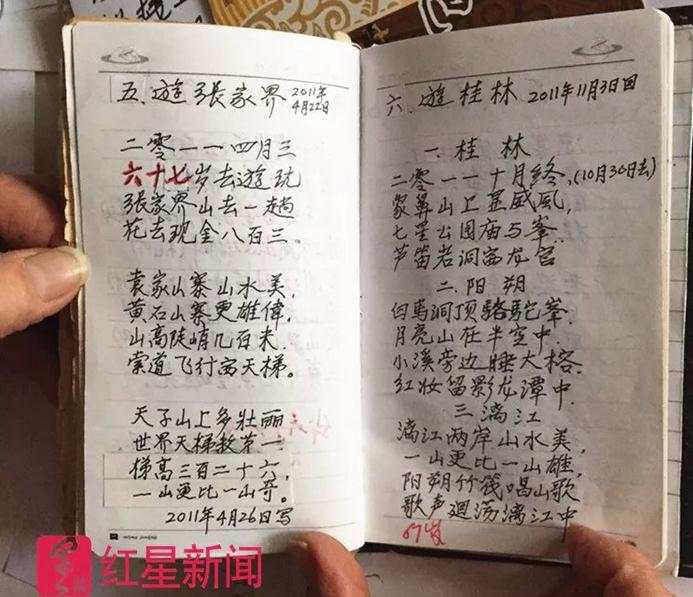 五、遊張家界 2011年
4月22日
二零一一四月三
六十七岁去遊玩
張家界山去一趟
花去现金八百三。
袁家山寨山水美,
黄石山寨更雄偉,
山高陡峭几百米,
索道飞行穿天梯。
天子山上多壮丽
世界天梯数第一
梯高三百二十六,
一山更比一山奇。
2011年4月26日写
六、遊桂林 2011年11月3日回
一. 桂林
二零一一十月终,(10月30日去)
象鼻山上显威風,
七星公园庙与峯.
芦笛岩洞 龙宫
二. 阳朔
白馬洞顶駱駝峯.
月亮山在半空中.
小溪旁边睡大榕.
红妆留影龙潭中.
三. 漓江
漓江两岸山水美,
一山更比一山雄,
阳朔竹筏唱山歌
歌声迴荡漓江中
67岁
红星新闻